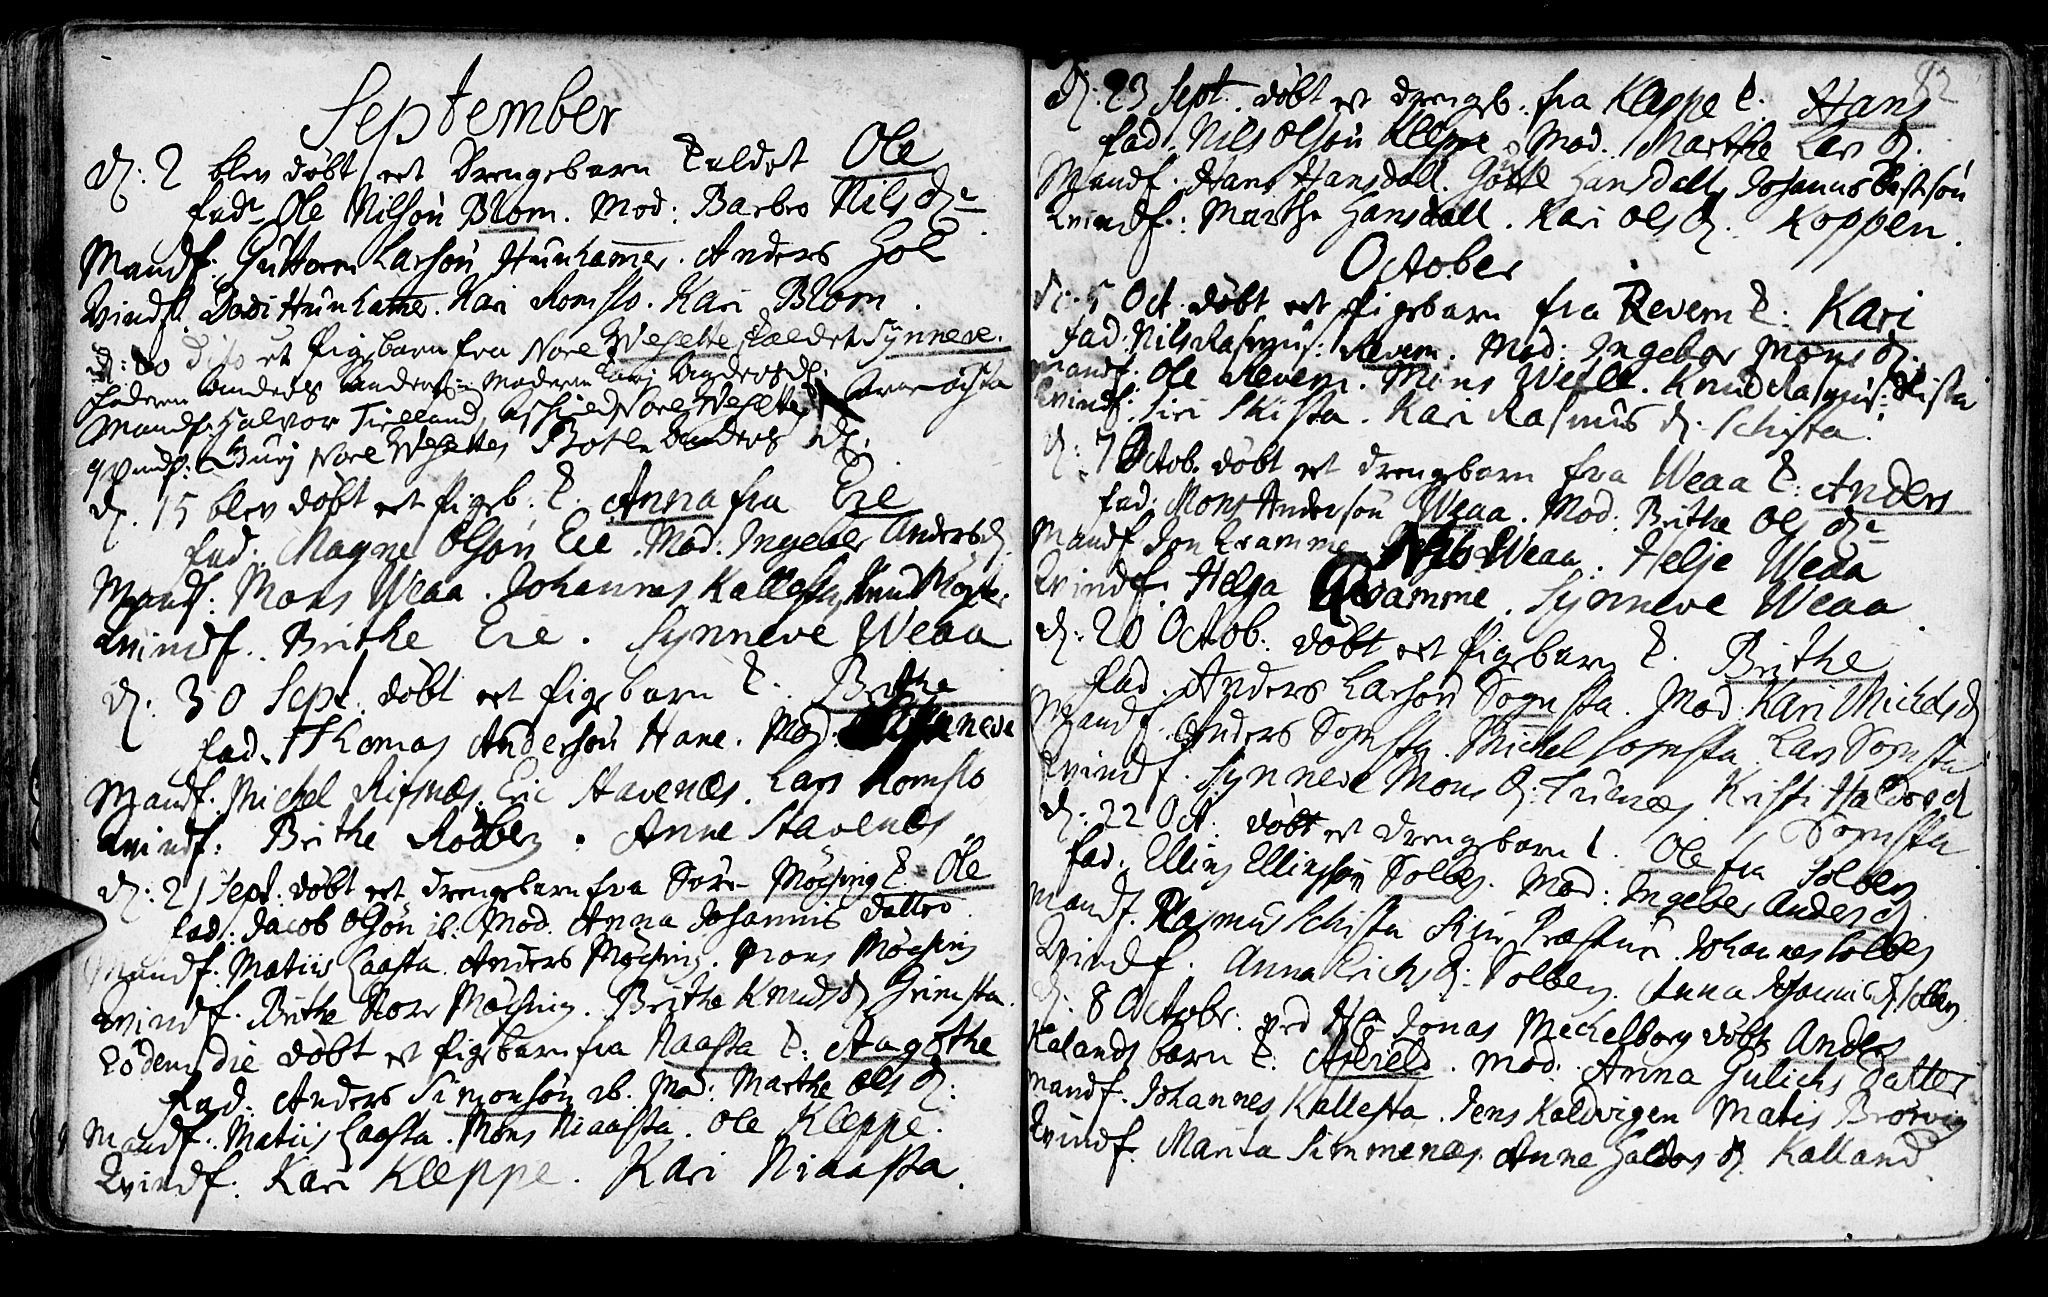 September
d: 2 blev döbt et Drengebarn kaldet Ole
fad: Ole Nilsön Blom. Mod: Barbro Nils d:
Mandf: Guttorm Larsön Hunhamer. Anders Hol
Kvindf: Hunhamer. Kari Romslo. Kari Blom.
d: dito et Pigebarn fra Nore Wehette kaldet Synneve.
faderen Anders Anders: Moderen Anders d:
Mandf: Halvor Tielland, Nore Wehette
qvindf: Gury Nore Wehettes Anders d:
d. 15 blev döbt et Pigeb: k. Anna fra Eie
fad: Magne Olsön Eie. Mod: Ingebor Anders d.
Mandf: Mons Weaa. Johannes Kallesta, Knud
Kvindf. Brithe Eie. Synneve Weaa
d. 30 Sept. döbt et Pigebarn k. Brithe
fad. Thomas Andersön Hane. Mod:
Mandf. Michel Rifsnæs. Eric Stavenæs. Lars Romslo
Kvindf: Brithe Rödberg. Anne Stavenæs
d: 21 Sept. döbt et Drengebarn fra Söre Möching k. Ole
fad: Jacob Olsön ib: Mod. Anna Johannis Datter
Mandf: Matiis Haasta. Anders Möching. Mons Möching
Kvindf. Brithe Nore Möching. Brithe Knuds d. Grimsta.
Eodem die döbt et Pigebarn fra Naasta k: Aagothe
fad: Anders Simonsön ib. Mod: Marthe Ols d:
Mandf: Matiis Haasta. Mons Niaasta. Ole Kleppe.
Kvindf. Kari Kleppe. Kari Niaasta.
82
d: 23 Sept. döbt et drengeb. fra Kleppe k. Hans
fad. Nils Olsön Kleppe. Mod. Marthe Lars d.
Mandf. Hans Hansdall. Götte Hansdall, Johannes
Kvindf: Marthe Hansdall. Kari Ols d. Koppen.
October
d: 5 Oct. döbt et Pigebarn fra Revem k. Kari
fad: Nils Rasmus: Revem. Mod: Ingebor Mons d.
Mandf: Ole Revem. Mons Weele. Knud Rasmus: Skista
Kvindf: Siri Skista. Kari Rasmus d. Schista.
d: 7 Octob. döbt et drengebarn fra Weaa k: Anders
fad. Mons Andersön Weaa. Mod. Brithe Ols d:
Mandf Jon Kramme. Nils Weaa. Helje Weaa
Kvindf. Helga Qvamme. Synneve Weaa.
d. 20 Octob: döbt et Pigebarn k. Brithe
fad. Anders Larsön Sognsta. Mod: Kari Michels d
Mandf. Anders Sognsta. Michel Sognsta. Lars Sognsta
Kvindf. Synneve Mons d: Trienæs, Kristi Haldors d
Sognsta.
d. 22 Oct. döbt et drengebarn k. Ole fra Solberg
fad. Elling Ellingsön Solberg. Mod: Ingebor Anders d.
Mandf. Rasmus Schista Præstun. Johannes Solberg
Kvindf. Anna Erichs d: Solberg. Anna Johannis d. Solberg
d. 8 Octobr: ved Hr. Jonas Mechelborg döbt Anders
Kalands barn k. Arield. Mod: Anna Gulichs Datter
Mandf. Johannes Kallesta. Jens Kaldvigen Matis Brörvig
Kvindf. Marita Simmenæs Anne Haldors d. Kalland.